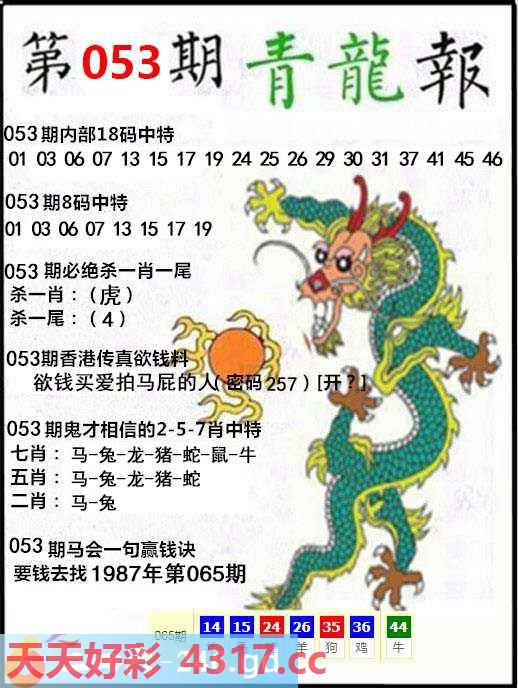 第053期青龍報
053期内部18码中特
01 03 06 07 13 15 17 19 24 25 26 29 30 31 37 41 45 46
053期8码中特
01 03 06 07 13 15 17 19
053期必绝杀一肖一尾
杀一肖：（虎）
杀一尾：（4）
053期香港传真欲钱料
欲钱买爱拍马屁的人（密码257）[开？]
053期鬼才相信的2-5-7肖中特
七肖：马-兔-龙-猪-蛇-鼠-牛
五肖：马-兔-龙-猪-蛇
二肖：马-兔
053期马会一句赢钱诀
要钱去找1987年第065期
065期 14 15 24 26 35 36 44
羊 狗 猴 牛
天天好彩 4317.cc